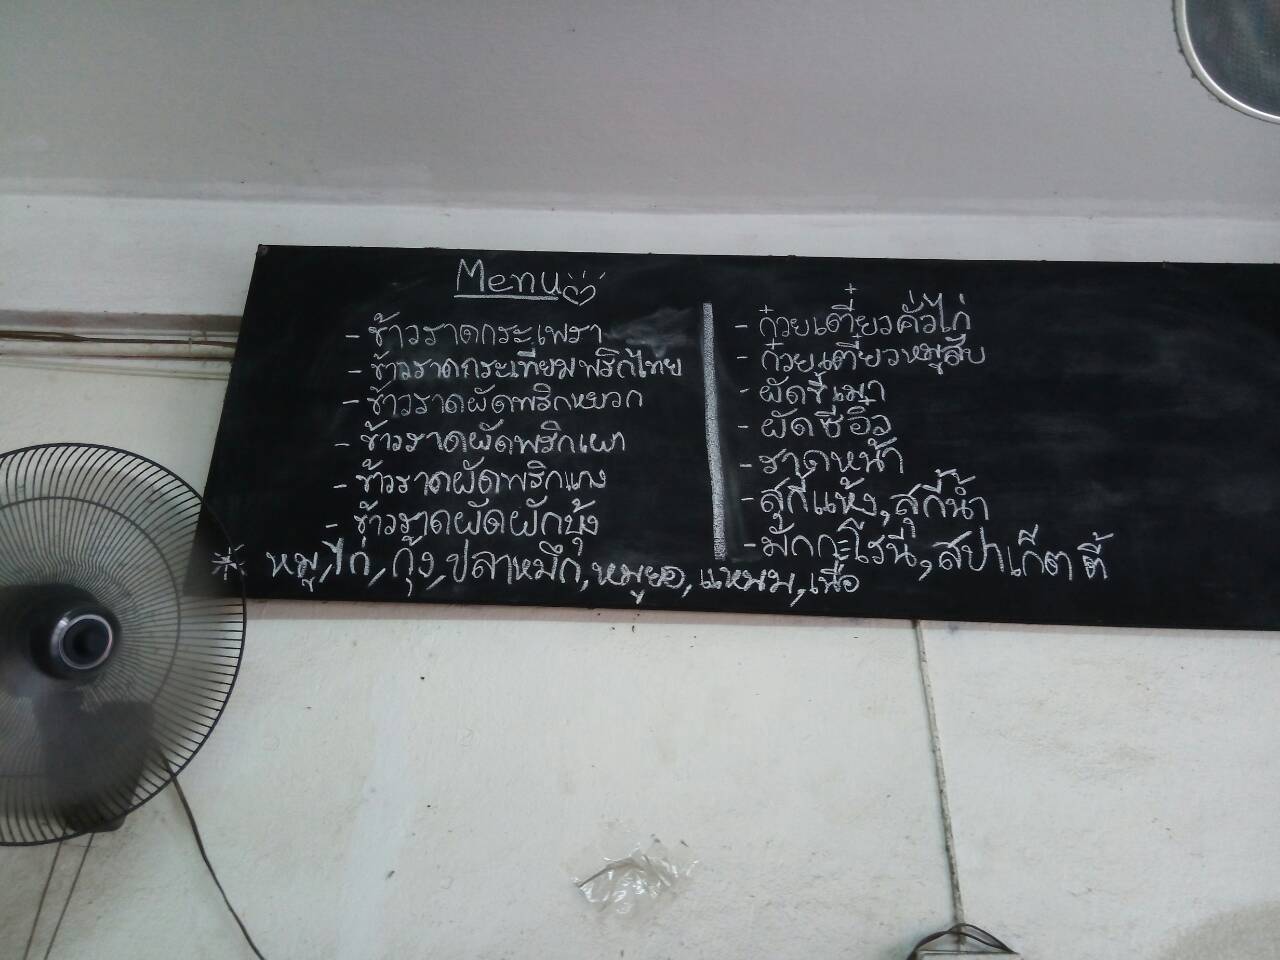 Menu
- ข้าวราดกระเพรา
- ข้าวราดกระเทียมพริกไทย
- ข้าวราดผัดพริกหยวก
- ข้าวราดผัดพริกเผา
- ข้าวราดผัดพริกแกง
- ข้าวราดผัดผักบุ้ง
- ก๋วยเตี๋ยวคั่วไก่
- ก๋วยเตี๋ยวหมูสับ
- ผัดขี้เมา
- ผัดซีอิ๋ว
- ราดหน้า
- สุกี้แห้ง, สุกี้น้ำ
- มักกะโรนี, สปาเก็ตตี้
* หมู, ไก่, กุ้ง, ปลาหมึก, หมูยอ, แหนม, เนื้อ